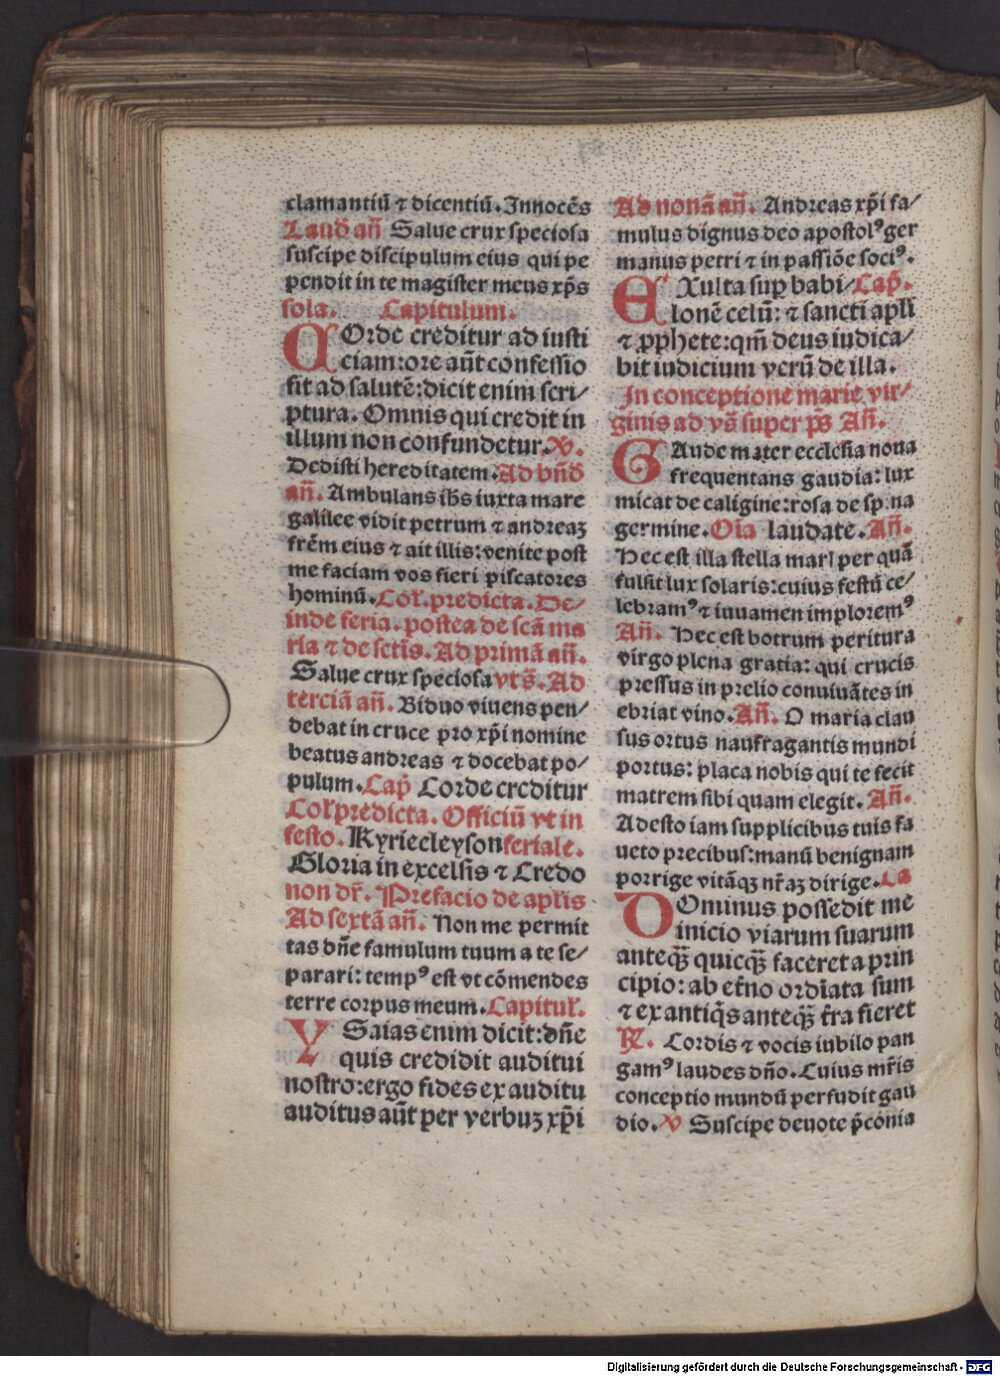 clamantiū ⁊ dicentiū. Innocēs
Laud̄ añ Salue crux speciosa
suscipe discipulum eius qui pe
pendit in te magister meus xp̄s
sola. Capitulum.
COrde creditur ad iusti
ciam: ore aūt confessio
fit ad salutē: dicit enim scri⸗
ptura. Omnis qui credit in
illum non confundetur. V.
Dedisti hereditatem. Ad bñd̄
añ. Ambulans ih̄s iuxta mare
galilee vidit petrum ⁊ andreaꝫ
frēm eius ⁊ ait illis: venite post
me faciam vos fieri piscatores
hominū. Coll̄. predicta. De⸗
inde feria. postea de scā ma
ria ⁊ de sctīs. Ad primā añ.
Salue crux speciosa vts̄. Ad
terciā añ. Biduo viuens pen⸗
debat in cruce pro xp̄i nomine
beatus andreas ⁊ docebat po⸗
pulum. Cap̄ Corde creditur
Coll̄ predicta. Officiū vt in
festo. Kyrieeleyson feriale.
Gloria in excelsis ⁊ Credo
non dr̄. Prefacio de aplīs
Ad sextā añ. Non me permit
tas dn̄e famulum tuum a te se⸗
parari: tempꝰ est vt cōmendes
terre corpus meum. Capitul̄.
YSaias enim dicit: dn̄e
quis credidit auditui
nostro: ergo fides ex auditu
auditus aūt per verbuꝫ xp̄i
Ad nonā añ. Andreas xp̄i fa⸗
mulus dignus deo apostolꝰ ger
manus petri ⁊ in passiōe sociꝰ.
EXulta sup̄ babi⸗ Cap̄.
lonē celū: ⁊ sancti apl̄i
⁊ ꝓphete: qm̄ deus iudica⸗
bit iudicium vcrū de illa.
In conceptione marie vir⸗
ginis ad vs̄ super ps̄ Añ.
GAude mater ecclesia noua
frequentans gaudia: lux
micat de caligine: rosa de spina
germine. Oīa laudate. Añ.
Hec est illa stella mari per quā
fulsit lux solaris: cuius festū ce⸗
lebramꝰ ⁊ iuuamen imploremꝰ
Añ. Hec est botrum peritura
virgo plena gratia: qui crucis
pressus in prelio conuiuātes in
ebriat vino. Añ. O maria clau
sus ortus naufragantis mundi
portus: placa nobis qui te fecit
matrem sibi quam elegit. Añ.
Adesto iam supplicibus tuis fa
ueto precibus: manū benignam
porrige vitāqꝫ nr̄aꝫ dirige. Ca
DOminus possedit me
inicio viarum suarum
anteqꝫ̄ quicqꝫ̄ faceret a prin
cipio: ab et̄no ordīata sum
⁊ ex antiq̄s anteqꝫ̄ t̄ra fieret
℟. Cordis ⁊ vocis iubilo pan
gamꝰ laudes dn̄o. Cuius mr̄is
conceptio mundū perfudit gau
dio. V Suscipe deuote p̄conia
Digitalisierung gefördert durch die Deutsche Forschungsgemeinschaft - DFG